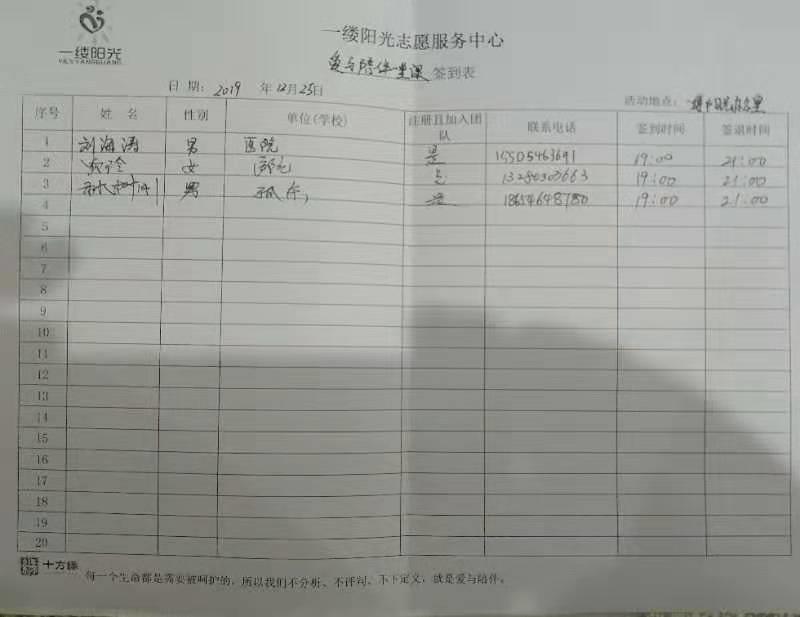 一缕阳光
YILVYANGGUANG
一缕阳光志愿服务中心
爱与陪伴一堂课 签到表
日 期: 2019 年 12月25日 活动地点:
序号 姓 名 性别 单位(学校) 注册且加入团队 联系电话 签到时间 签退时间
1 刘海涛 男 医院 是 15505463691 19:00 21:00
2 女 是 19:00 21:00
3 男 是 18654648780 19:00 21:00
4
5
6
7
8
9
10
11
12
13
14
15
16
17
18
19
20
十方缘
每一个生命都是需要被呵护的，所以我们不分析、不评判、不下定义，就是爱与陪伴。